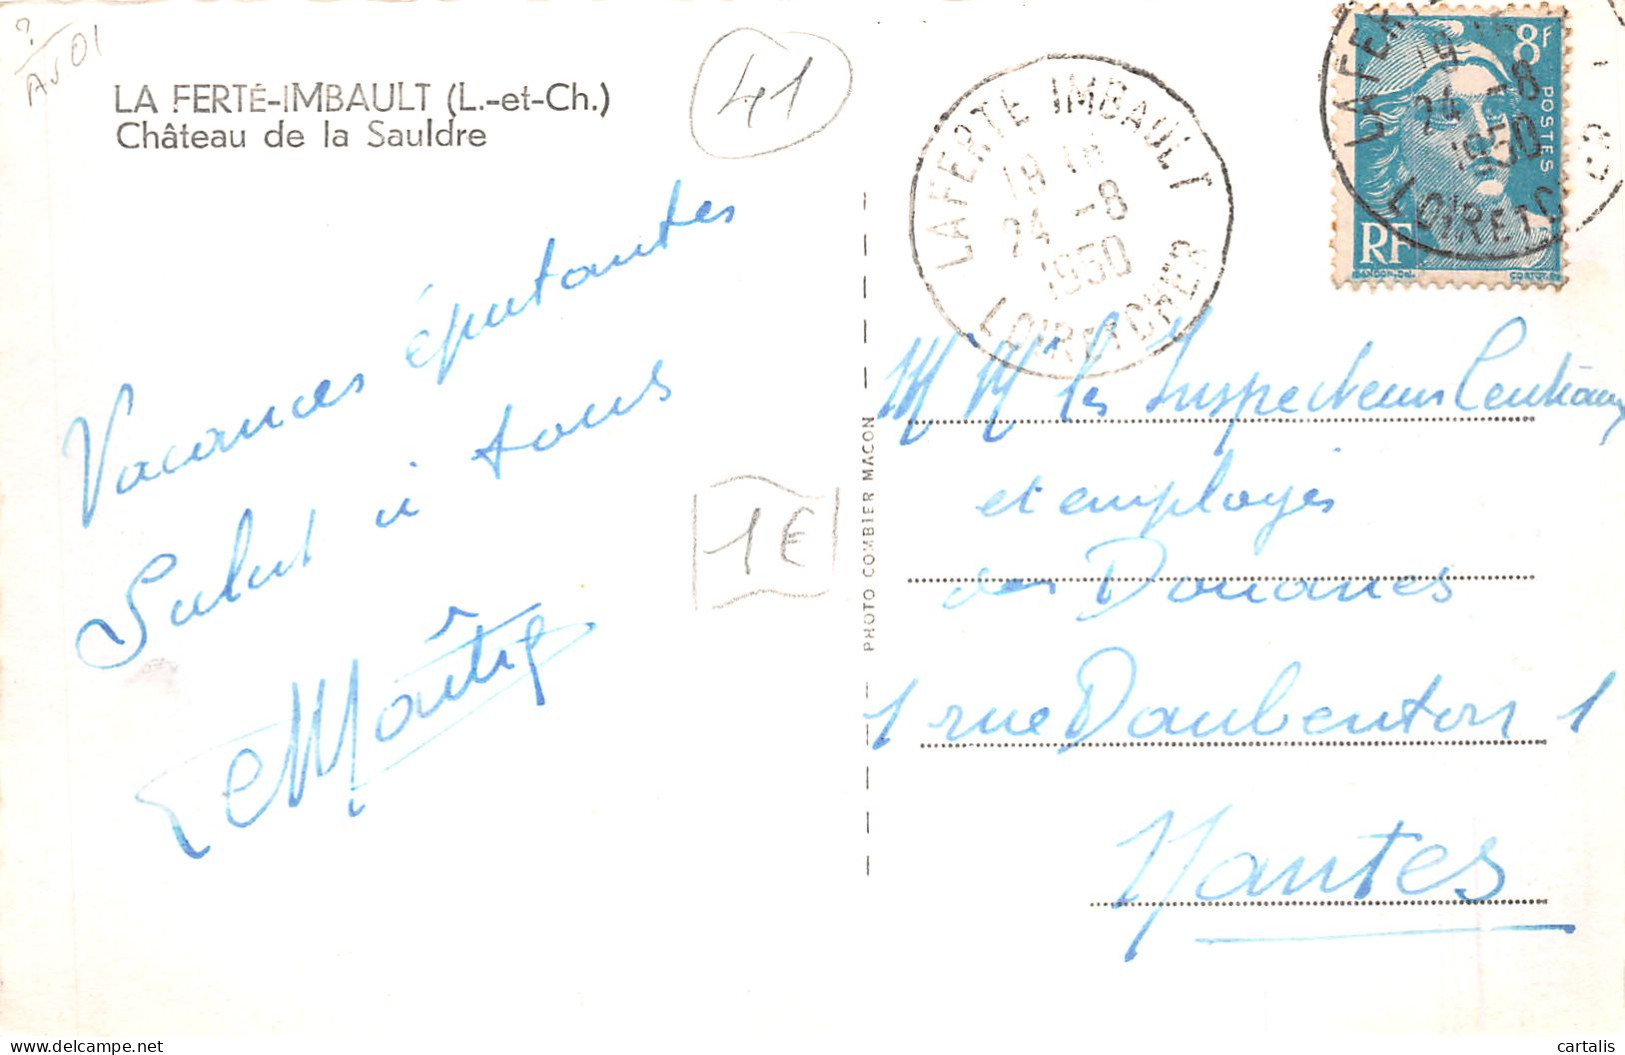 ?
A501
LA FERTÉ-IMBAULT (L.-et-Ch.)
Château de la Sauldre
41
Vacances épatantes
Salut à tous
LeMaître
1€
PHOTO COMBIER MACON
LA FERTE IMBAULT
19
24 -8
1950
LOIR ET CHER
8f
POSTES
RF
GANDON.DEL.
CORTOT.SC
LA FERTE
19
24 -8
1950
LOIR ET C
M M les Inspecteurs Centraux
et employés
des Douanes
1 rue Daubenton 1
Nantes
cartalis
delcampe.net